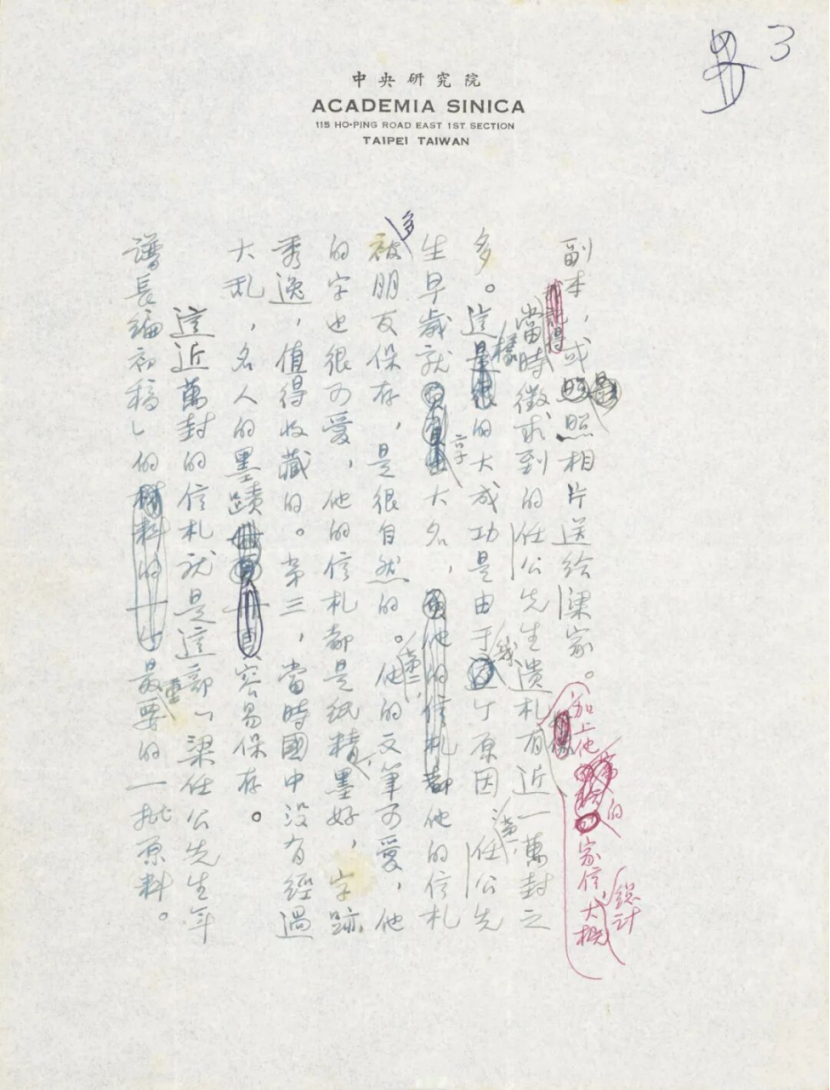 3
中央研究院
ACADEMIA SINICA
115 HO-PING ROAD EAST 1ST SECTION
TAIPEI TAIWAN
副本，或是照相片送給梁家。
當時徵求到的任公先生遺札有近一萬封之
加上他的家信，大概總計
多。這樣的大成功是由于幾个原因：第一，任公先
生早歲就享大名，他的信札
多被朋友保存，是很自然的。第二，他的文筆可愛，他
的字也很可愛，他的信札都是紙精墨好，字跡
秀逸，值得收藏的。第三，當時國中沒有經過
大乱，名人的墨蹟容易保存。
這近萬封的信札就是這部「梁任公先生年
譜長編初稿」的最重要的一批原料。